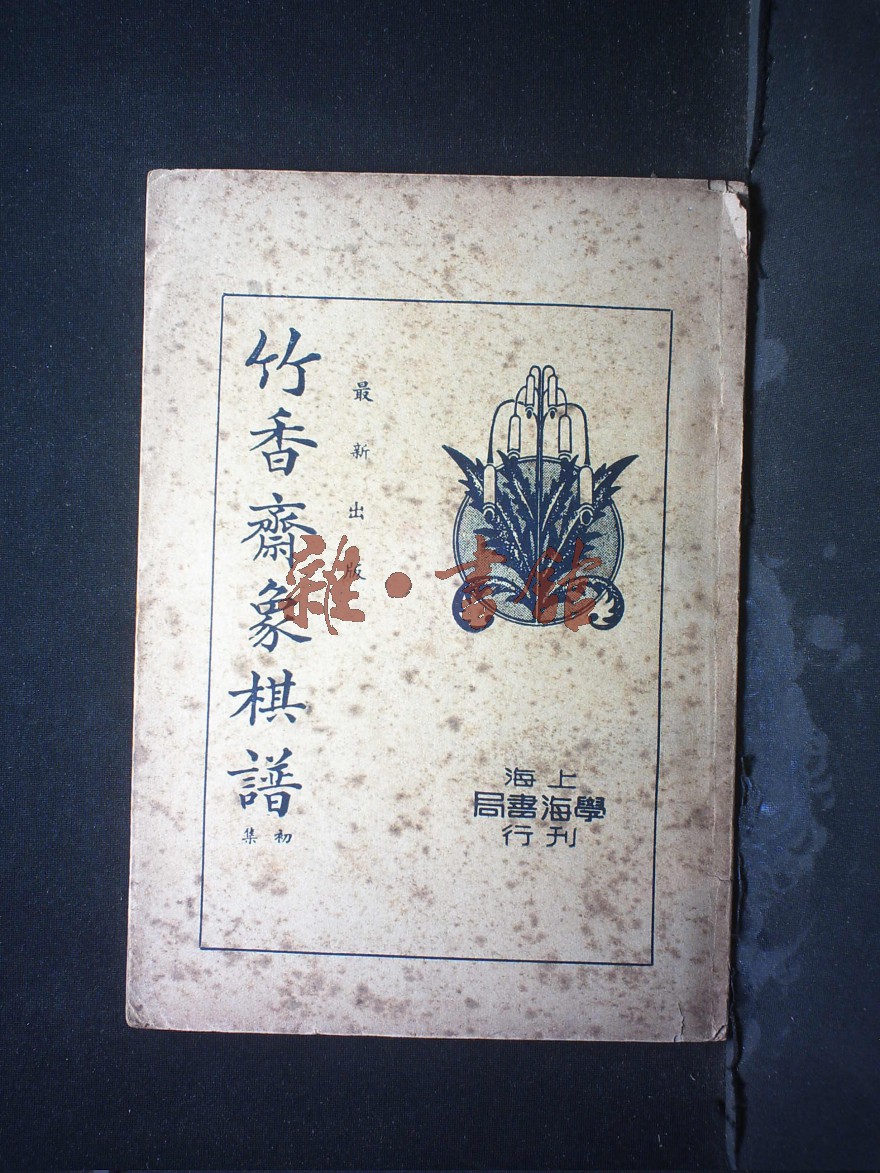 竹香齋象棋譜
初集
最新出版
上海
學海書局
刊行
雜·書館